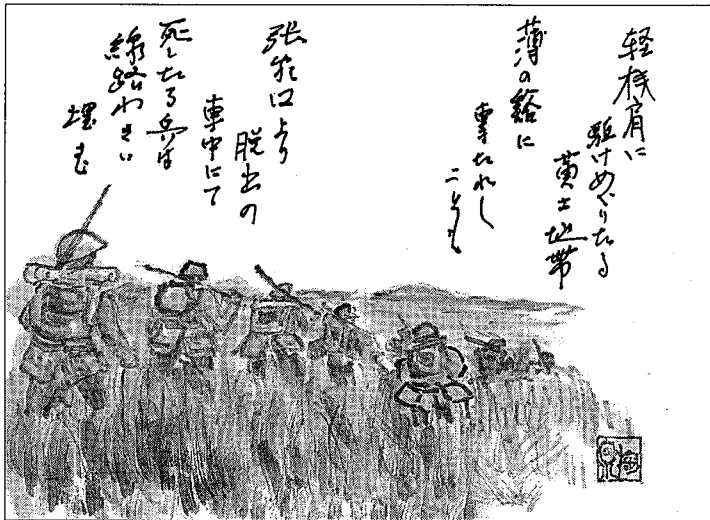 軽機肩に
駆けめぐりたる
黄土地帯
薄の谿に
撃たれし
こともも
張家口より
脱出の
車中にて
死したる兵は
線路わきに
埋む